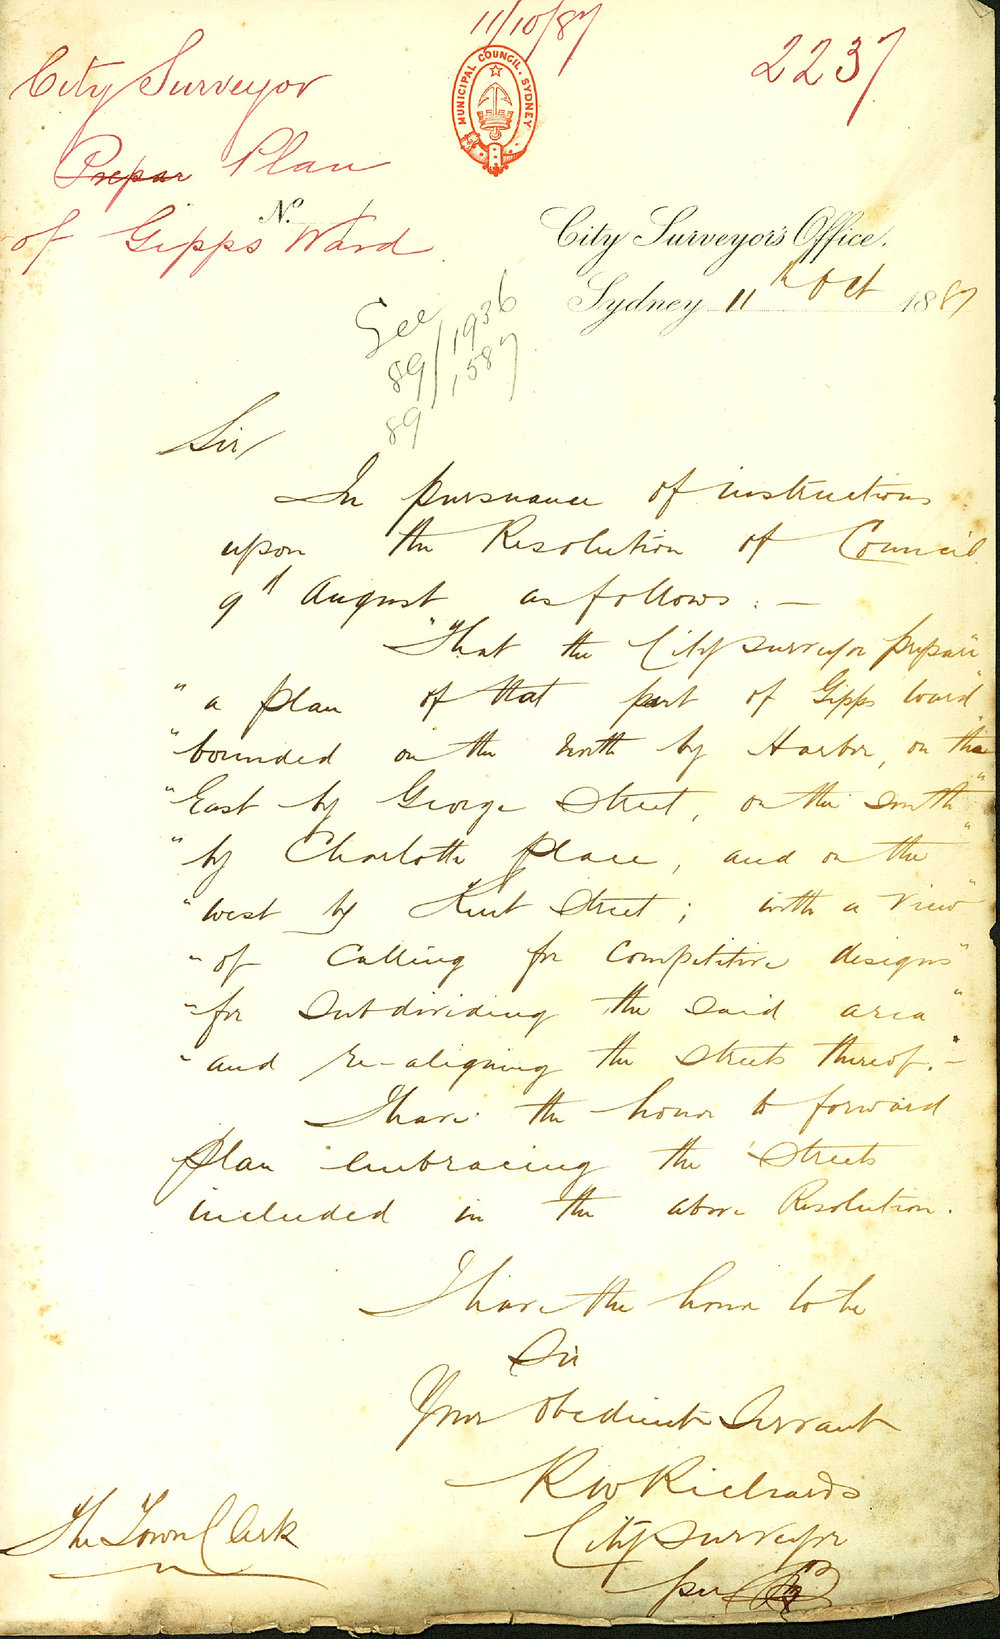 11/10/87
2237
City Surveyor
Prepar Plan
of Gipps Ward
MUNICIPAL COUNCIL. SYDNEY
No.
City Surveyor's Office.
Sydney 11th Oct 1887
See
89/1936
89/1587
Sir
In pursuance of instructions
upon the Resolution of Council
9th August as follows: —
"That the City Surveyor prepare"
"a plan of that part of Gipps Ward"
"bounded on the North by Harbor, on the"
"East by George Street, on the South"
"by Charlotte Place, and on the"
"west by Kent Street; with a view"
"of calling for competitive designs"
"for subdividing the said area"
"and re-aligning the Streets thereof." —
I have the honor to forward
plan embracing the Streets
included in the above Resolution.
I have the honor to be
Sir
Your obedient Servant
R W Richards
City Surveyor
per
The Town Clerk